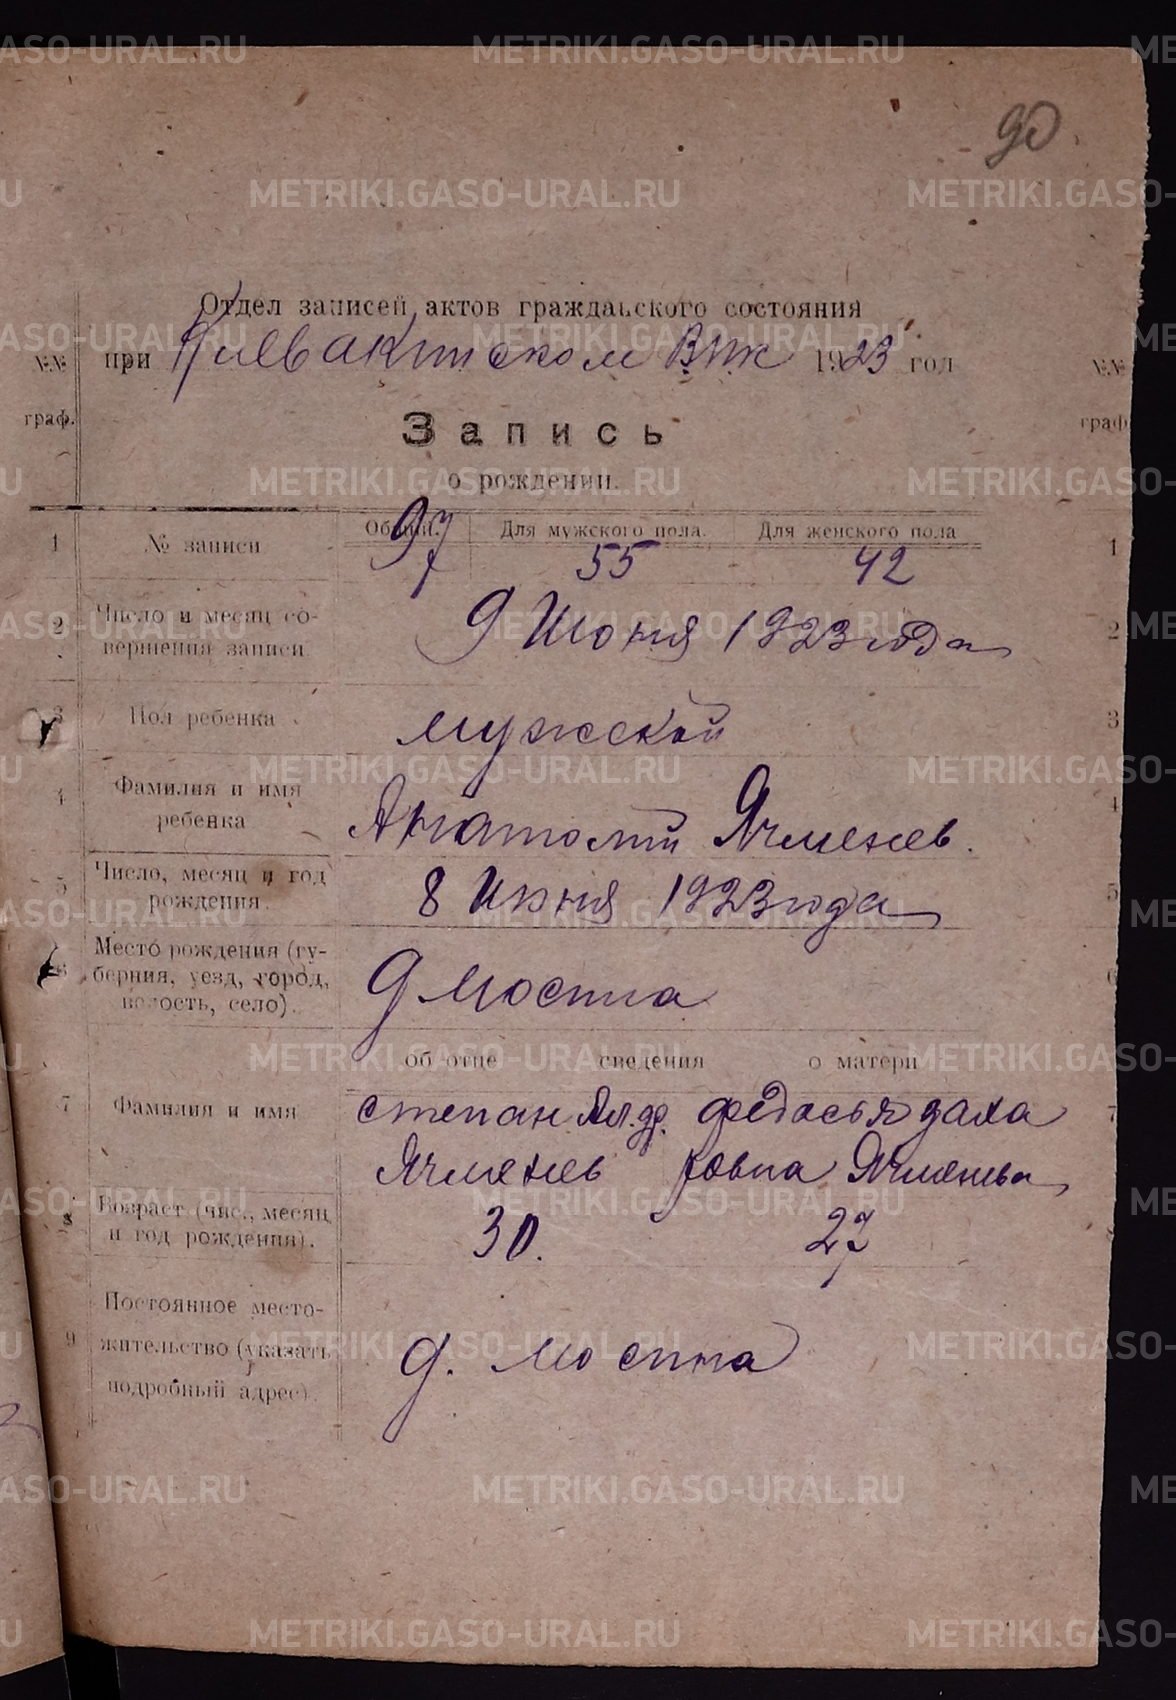 90
Отдел записей актов гражданского состояния
при Кисвакитском ВИК 1923 год
№№ граф.
№№ граф
Запись
о рождении.
Общий. Для мужского пола. Для женского пола
1 № записи 97 55 42 1
2 Число и месяц со-
вершения записи 9 Июня 1923 года 2
3 Пол ребенка мужской 3
4 Фамилия и имя
ребенка Анатолий Ячменев. 4
5 Число, месяц и год
рождения. 8 Июня 1923 года 5
6 Место рождения (гу-
берния, уезд, город,
волость, село). д Мосина 6
об отце сведения о матери
7 Фамилия и имя степан Ал.др. федосья заха 7
Ячменев ровна Ячменева
8 Возраст (чис., месяц
и год рождения). 30. 27
9 Постоянное место-
жительство (указать
подробный адрес). д. мосина
METRIKI.GASO-URAL.RU